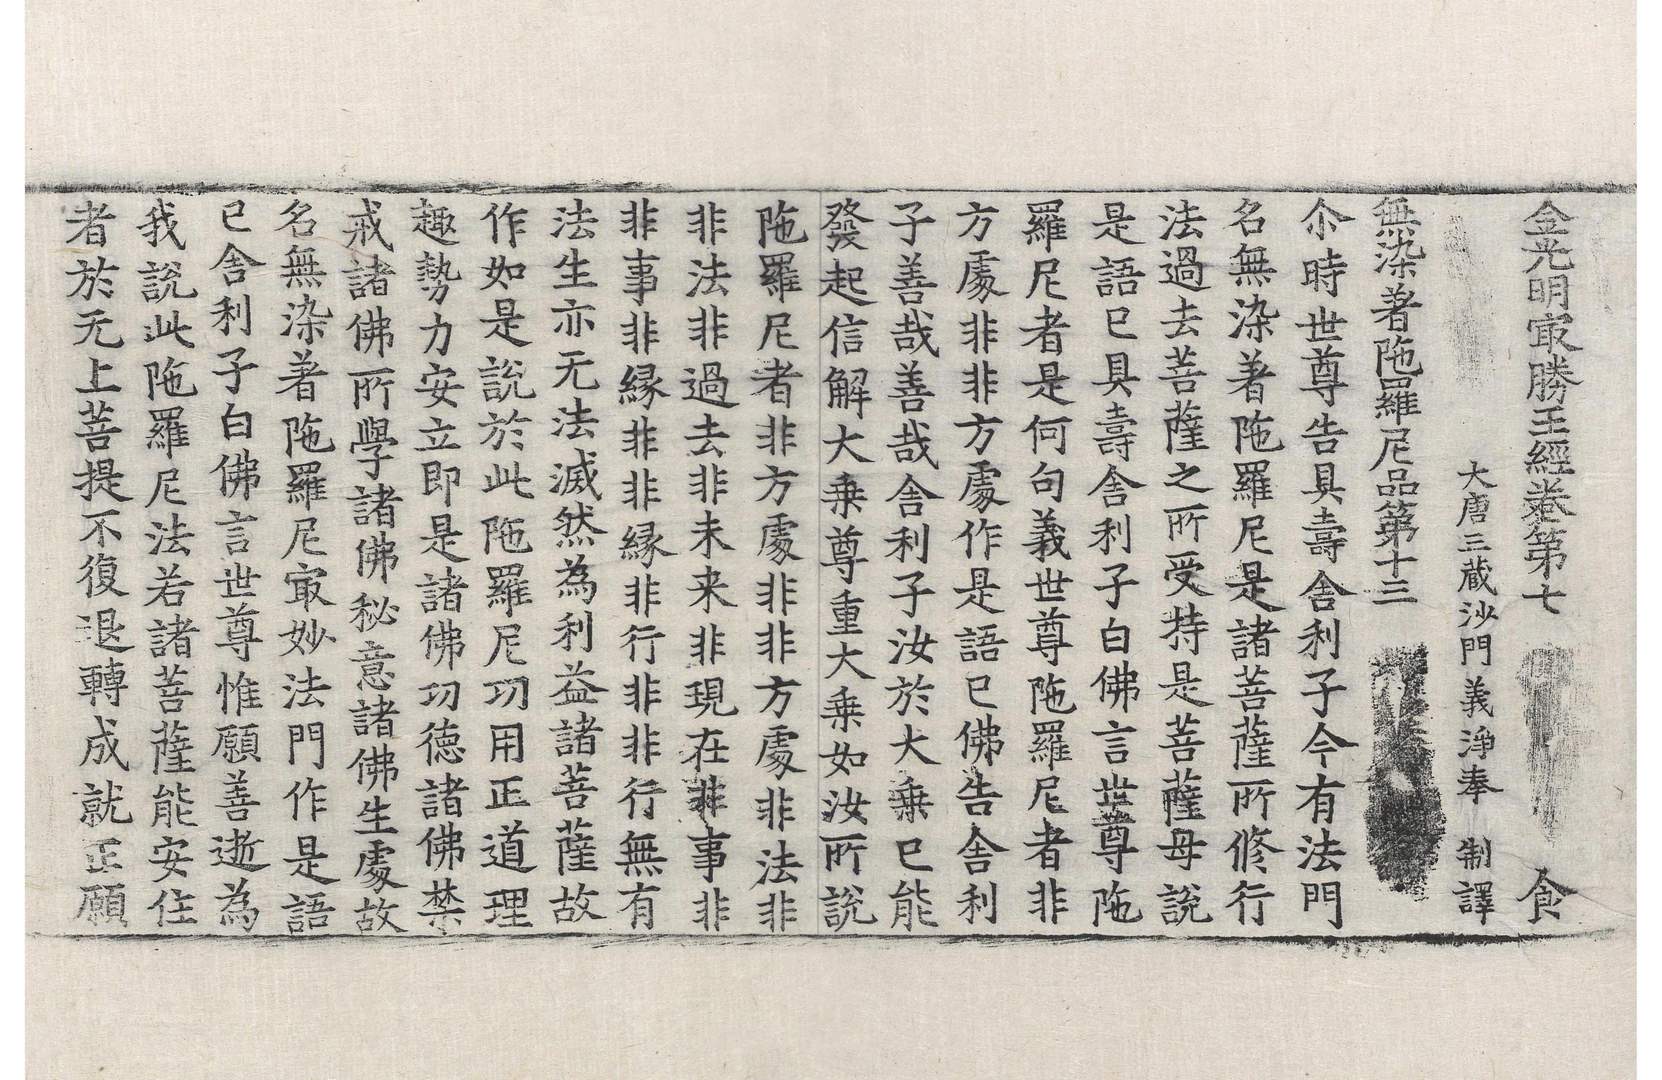 金光明㝡勝王經卷第七　食
大唐三蔵沙門義淨奉　制譯
無染著陁羅尼品第十三
尒時世尊告具壽舍利子今有法門
名無染著陁羅尼是諸菩薩所修行
法過去菩薩之所受持是菩薩母說
是語已具壽舍利子白佛言世尊陁
羅尼者是何句義世尊陁羅尼者非
方處非非方處作是語已佛告舍利
子善哉善哉舍利子汝於大乗已能
發起信解大乗尊重大乗如汝所說
陁羅尼者非方處非非方處非法非
非法非過去非未来非現在非事非
非事非縁非非縁非行非非行無有
法生亦无法滅然為利益諸菩薩故
作如是說於此陁羅尼功用正道理
趣勢力安立即是諸佛功德諸佛禁
戒諸佛所學諸佛秘意諸佛生處故
名無染著陁羅尼㝡妙法門作是語
已舍利子白佛言世尊惟願善逝為
我說此陁羅尼法若諸菩薩能安住
者於无上菩提不復退轉成就正願